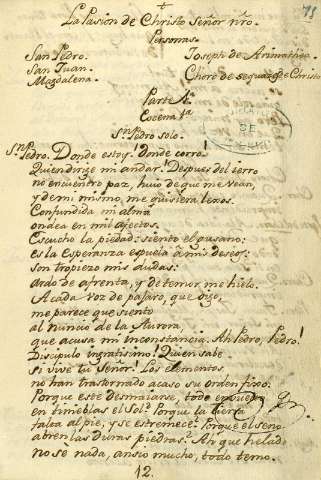 75
La Pasion de Christo Señor nrô.
Personas.
San Pedro. Joseph de Arimathea.
San Juan. Choro de sequazes de Christo
Magdalena.
Parte 1ª
Ecena 1ª
Sn Pedro solo.
Sn Pedro. Donde estoy! donde corro!
Quien dirige mi andar! Despues del ierro
no encuentro paz, huio de que me vean,
y de mi mismo, me quisiera lexos.
Confundida mi alma
ondea en mil afectos.
Escucho la piedad: siento el gusano:
es la Esperanza espuela à mis deseos:
son tropiezo mis dudas:
ardo de afrenta, y de temor me hielo.
A cada voz de pajaro, que oigo,
me parece que siento
al nuncio de la Aurora,
que acusa mi inconstancia. Ah Pedro, Pedro!
Discipulo ingratisimo! Quien sabe
si vive tu Señor! Los elementos
no han trastornado acaso su orden fixo.
Porque este desmaiarse, todo
en tinieblas el Sol? Porque la tierra
falta al pie, y se estremece? Porque el seno
abren las duras piedras? Ah que helado
no se nada, ansio mucho, todo temo.
12.